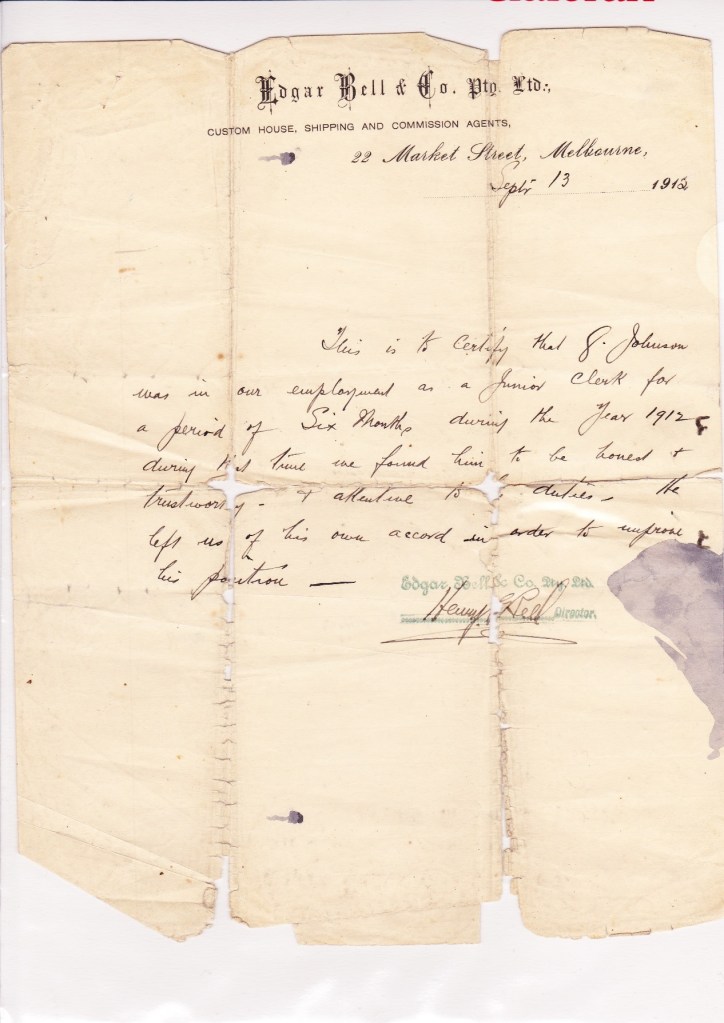 Edgar Bell & Co. Pty. Ltd.,
CUSTOM HOUSE, SHIPPING AND COMMISSION AGENTS,
22 Market Street, Melbourne,
Septr 13 1912
This is to certify that J. Johnson
was in our employment as a Junior Clerk for
a period of Six Months during the Year 1912
during that time we found him to be honest &
trustworthy - & attentive to duties - He
left us of his own accord in order to improve
his position —
Edgar Bell & Co. Pty. Ltd.
Henry Bell Director.